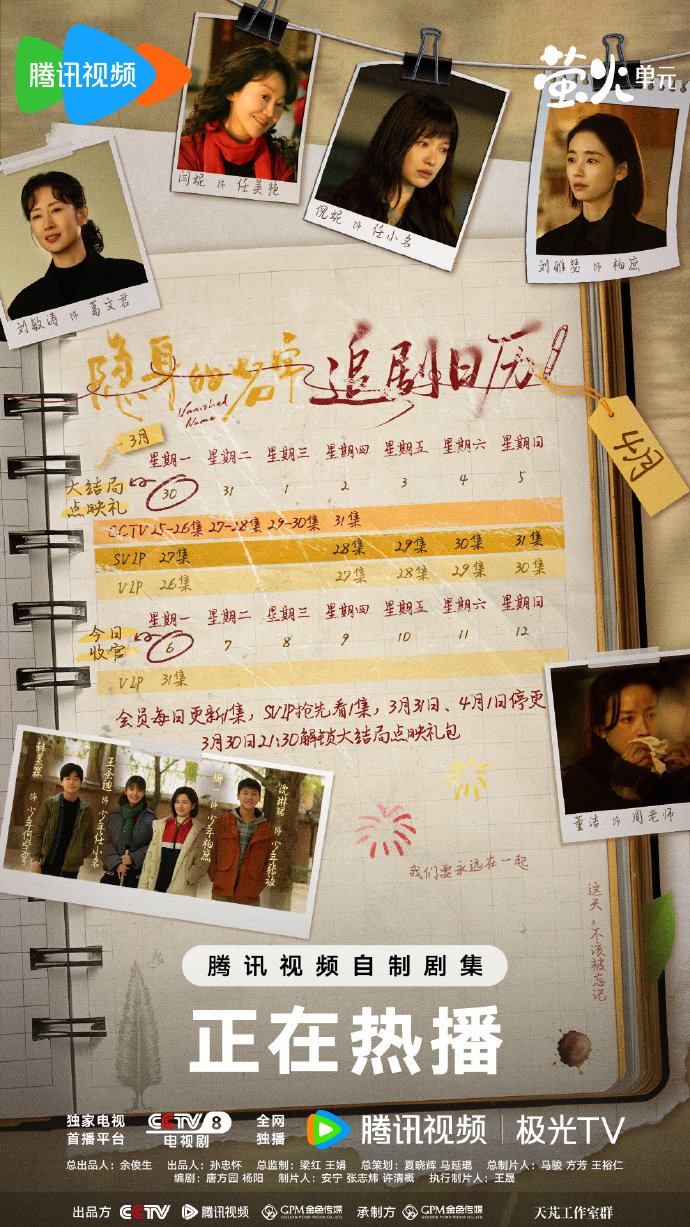 腾讯视频
萤火单元
闫妮 饰 任美艳
倪妮 饰 任小名
刘雅瑟 饰 柏庶
刘敏涛 饰 葛文君
隐身的名字 追剧日历
Vanished Name
3月
4月
星期一 星期二 星期三 星期四 星期五 星期六 星期日
大结局点映礼
30 31 1 2 3 4 5
CCTV 25-26集 27-28集 29-30集 31集
SVIP 27集 28集 29集 30集 31集
VIP 26集 27集 28集 29集 30集
星期一 星期二 星期三 星期四 星期五 星期六 星期日
今日收官
6 7 8 9 10 11 12
VIP 31集
会员每日更新1集，SVIP抢先看1集，3月31日、4月1日停更
3月30日21:30解锁大结局点映礼包
董洁 饰 周老师
王圣迪 饰 少年任小名
我们要永远在一起
这天，不该被忘记
腾讯视频自制剧集
正在热播
独家电视首播平台 CCTV 8 电视剧 全网独播 腾讯视频 极光TV
总出品人：余俊生 出品人：孙忠怀 总监制：梁红 王娟 总策划：夏晓辉 马延琨 总制片人：马骏 方芳 王裕仁
编剧：唐方园 杨阳 制片人：安宁 张志炜 许清概 执行制片人：王晟
出品方 CCTV 腾讯视频 GPM金色传媒 GOLDEN POND MEDIA 承制方 GPM金色传媒 GOLDEN POND MEDIA 天芃工作室群